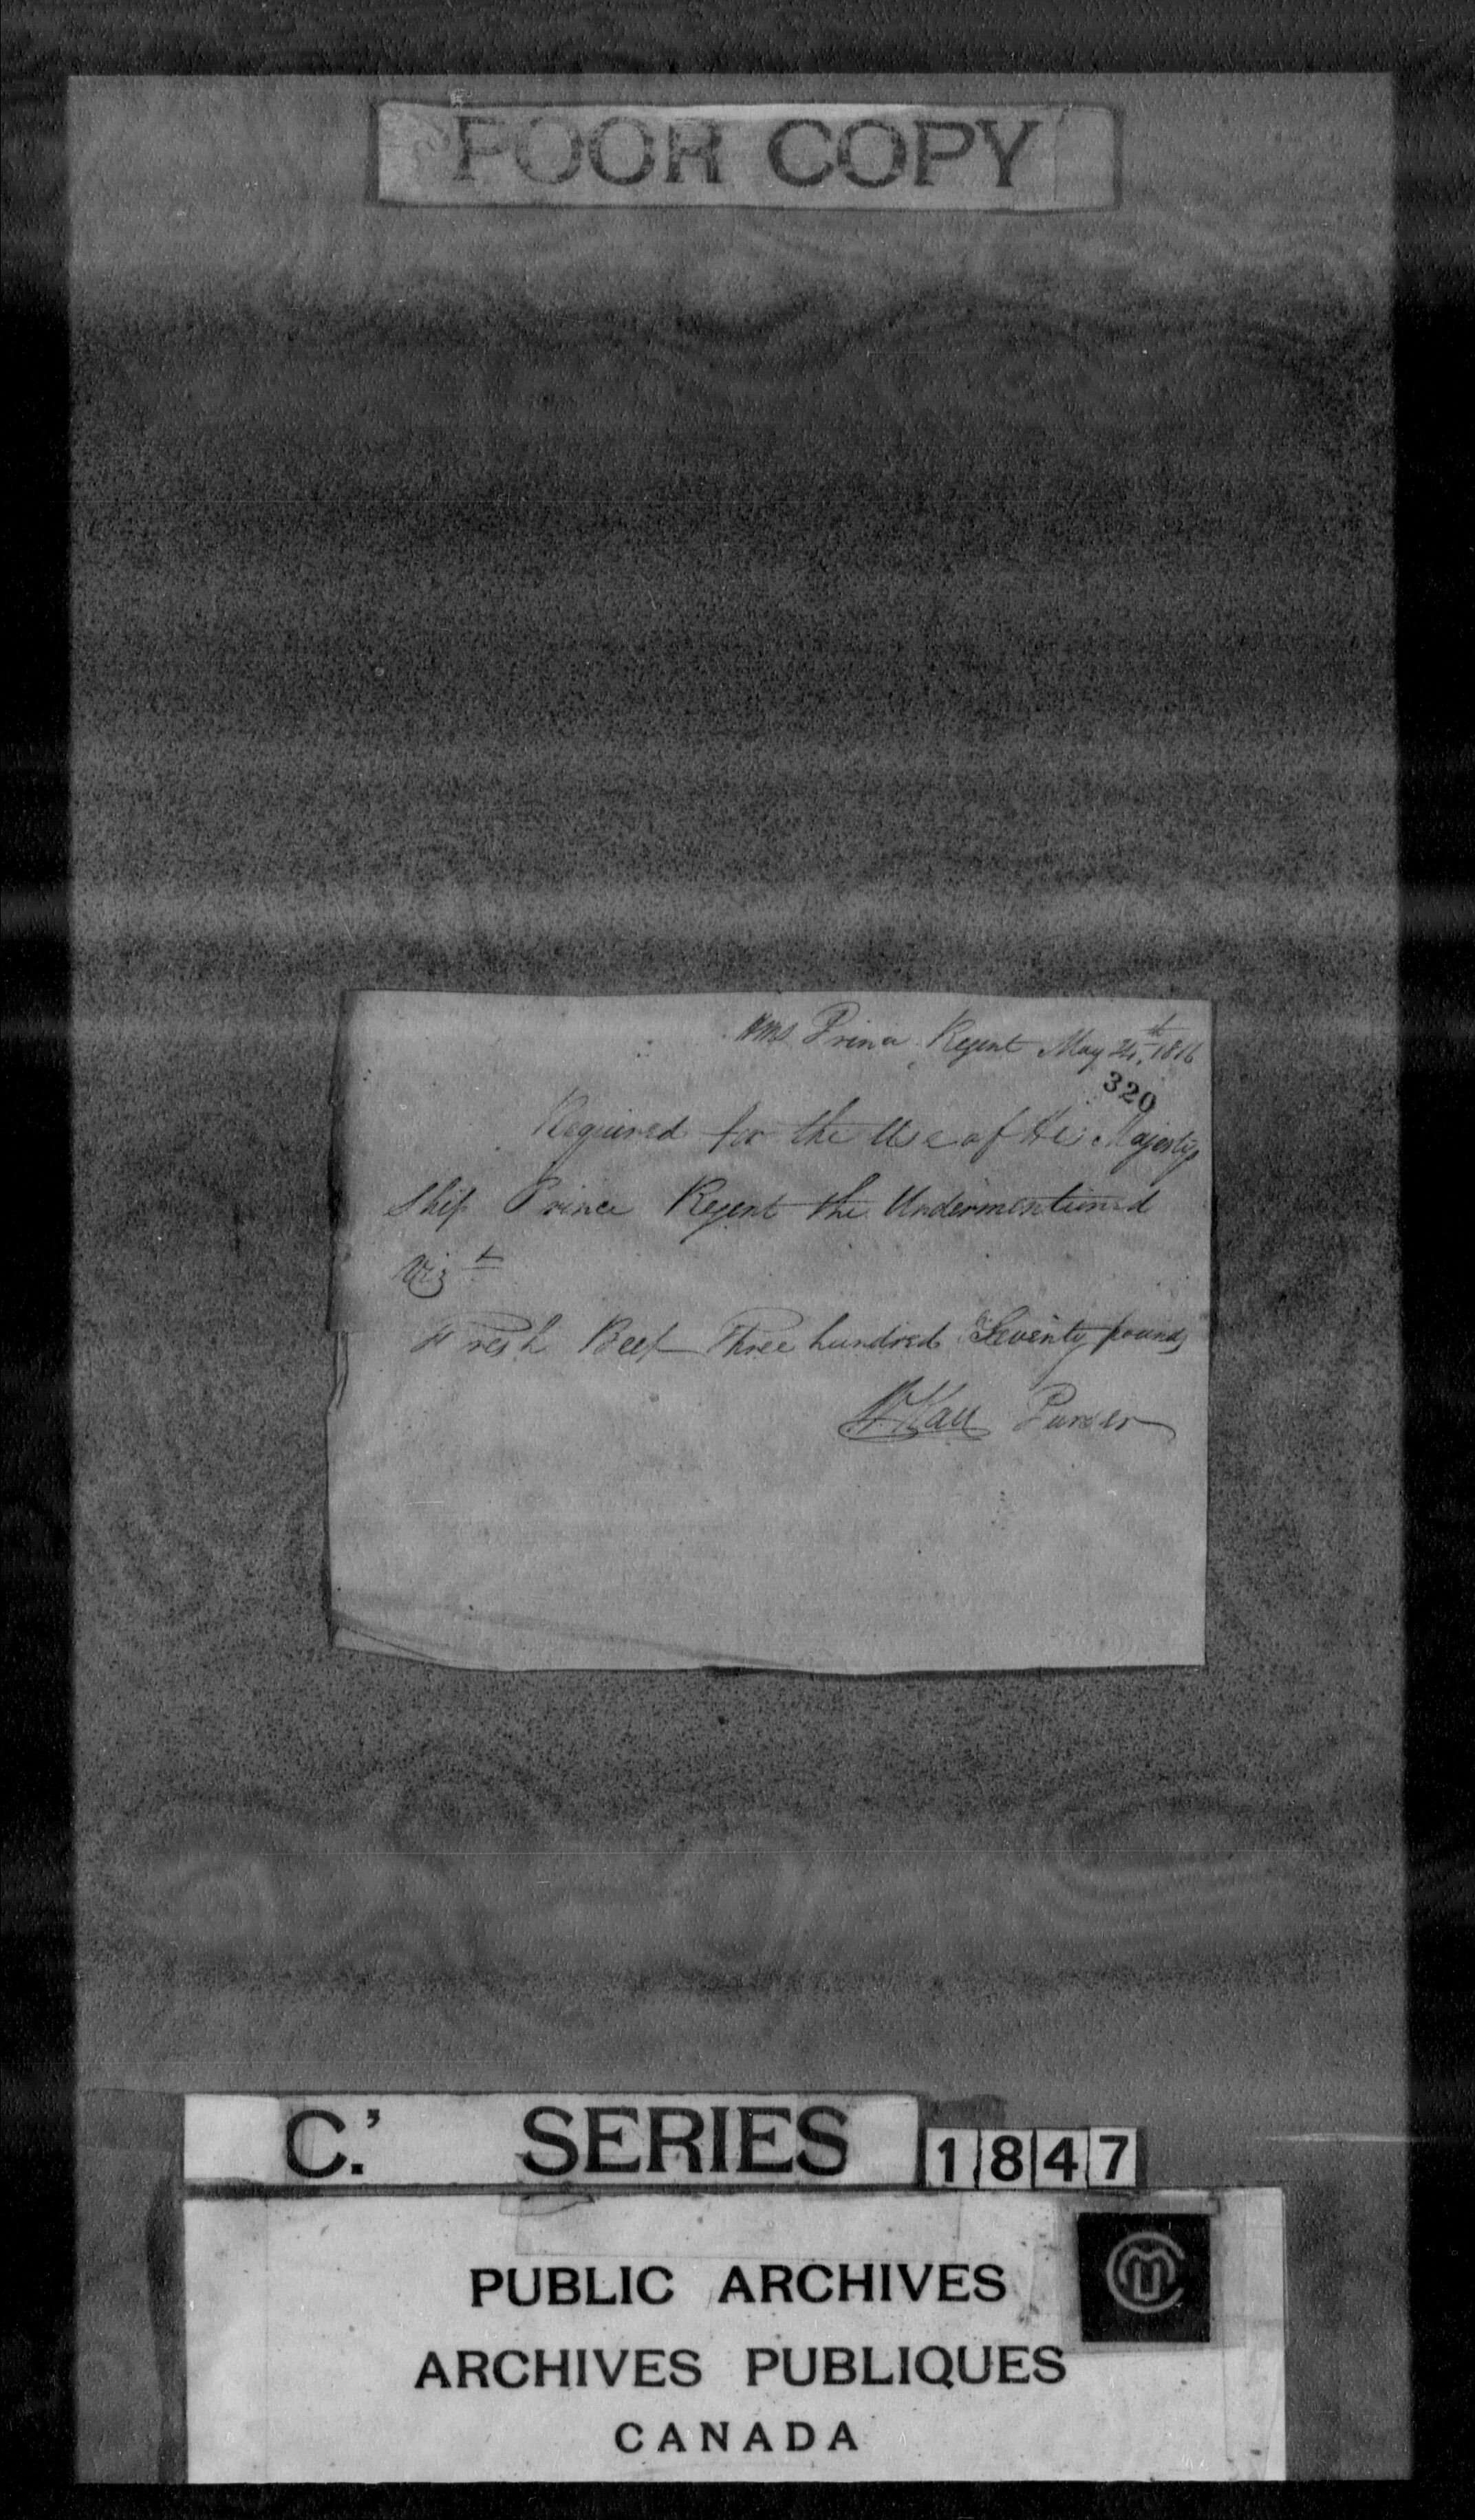 POOR COPY
HMS Prince Regent May 24th, 1816
320
Required for the Use of His Majestys
Ship Prince Regent the Undermentioned
Vizt
Fresh Beef Three hundred Seventy pounds
Purser
C. SERIES 1847
PUBLIC ARCHIVES
ARCHIVES PUBLIQUES
CANADA